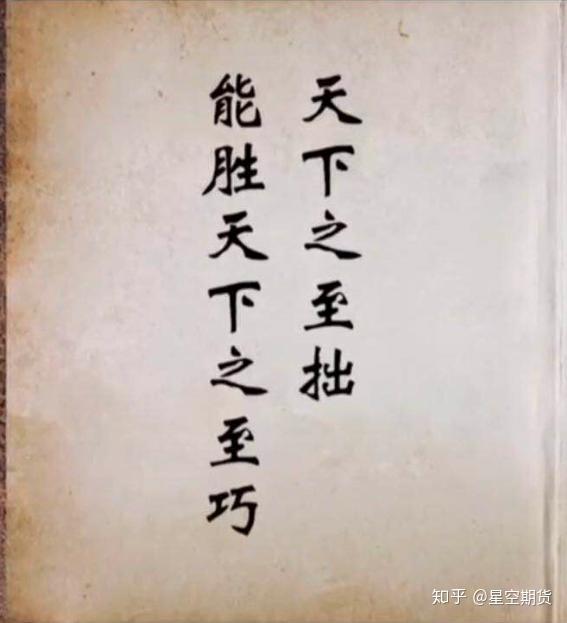 天下之至拙
能胜天下之至巧
知乎 @星空期货